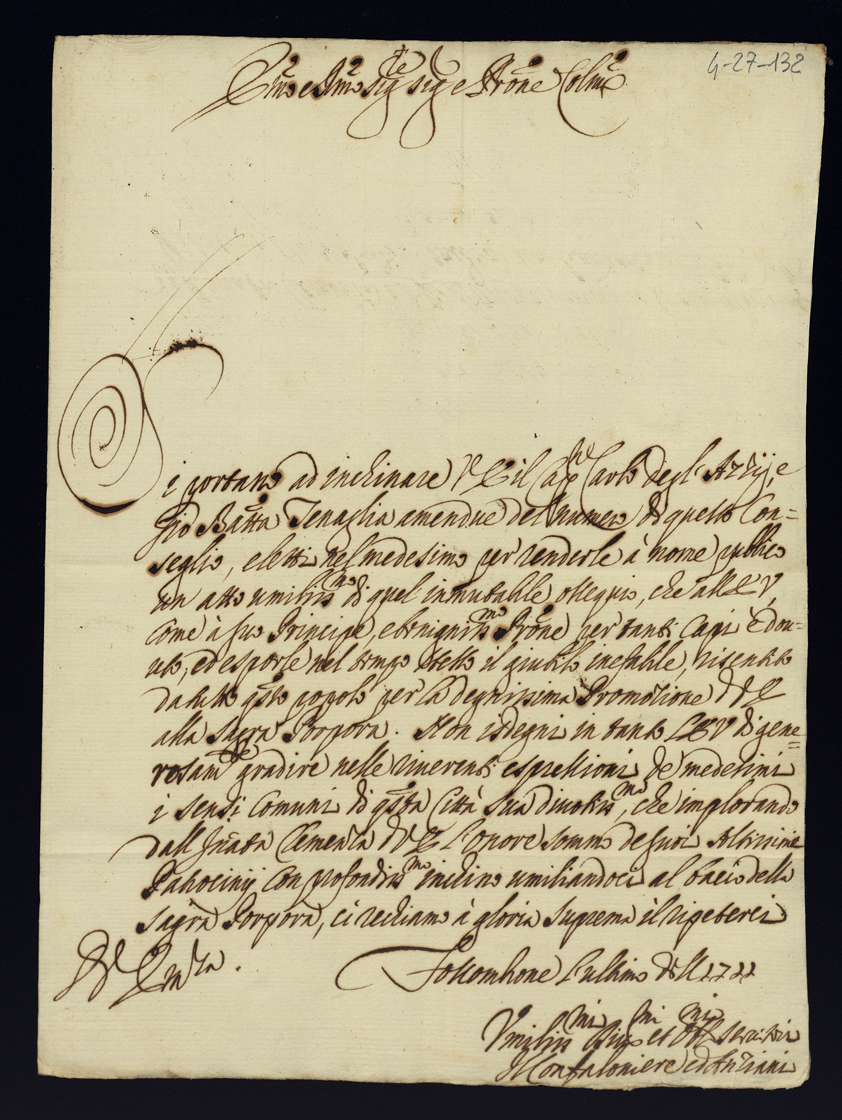 4-27-132
Em̃o e Rm̃o Sig.re Sig.e Prõne Colm̃o
Si portano ad inchinare V E il Cap.no Carlo degl'Azzij, e
Gio Batta Tenaglia amendue del numero di questo Con=
seglio, eletti nel medesimo per renderle à nome publico
un atto umiliss.mo di quel inmutabile ossequio, che all'E V,
come à suo Principe, e benigniss.mo Prõne per tanti capi è dou=
uto, ed esporle nel tempo stesso il giubilo inefabile, risentito
da tutto q̃sto popolo per la degnissima Promozione d V E
alla Sagra Porpora. Non isdegni in tanto L'E V di gene=
rosam.te gradire nelle riverenti espressioni de medesimi
i sensi comuni di q̃sta Città sua divotiss.ma, che implorando
dall' Inãta Clemenza d V E l'onore sommo de suoi Altissimi
Patrocinij con profondiss.mo inchino umiliandoci al bacio della
sagra Porpora, ci rechiamo à gloria suprema il ripeterci
D V Em.za.
Fossombrone l'ultimo 1722
Umiliss.mi et Obl.mi Servitori
Il Confaloniere ed Anziani